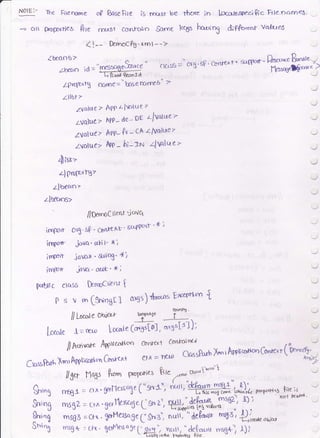 NOTE:- The Filename of Base File is must be there in Localespecific File names.
→ all properties file must contain Same keys having different Values
<!-- DemoCfg.xml -->
<beans>
<bean id="messageSource" class="org.sf.context.support.Resource Bundle
MessageSource">
<property name="basenames">
<list>
<value> App </value>
<value> App_de_DE </value>
<value> App_fr_CA </value>
<value> App_hi_IN </value>
</list>
</property>
</bean>
</beans>
//DemoClient.java
import org.sf.context.support.*;
import java.util.*;
import javax.swing.*;
import java.awt.*;
public class DemoClient {
P s v m (String[] args) throws Exception {
//Locale Object language country
Locale l = new Locale(args[0], args[1]);
//Activate Application Context Container
ClassPathXmlApplicationContext ctx = new ClassPathXmlApplicationContext("Democfg.
xml");
//get Msgs from properties file
String msg1 = ctx.getMessage("Str1", null, "default msg1", l);
String msg2 = ctx.getMessage("Str2", null, "default msg2", l);
String msg3 = ctx.getMessage("Str3", null, "default msg3", l);
String msg4 = ctx.getMessage("Str4", null, "default msg4", l);